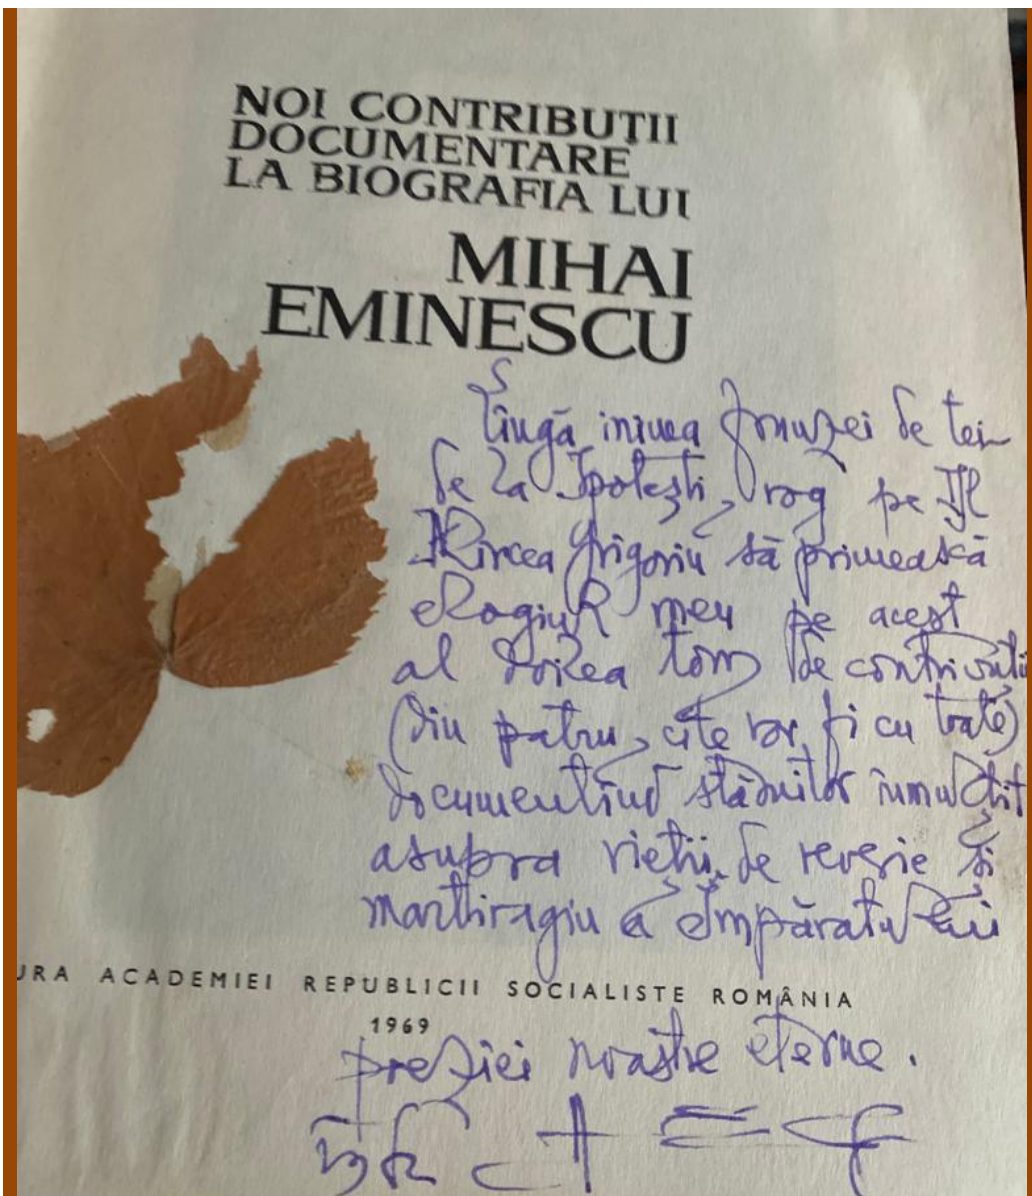 NOI CONTRIBUȚII
DOCUMENTARE
LA BIOGRAFIA LUI
MIHAI
EMINESCU
Lîngă inima frunzei de tei
de la Ipotești, rog pe
Mircea Grigoriu să primească
elogiul meu pe acest
al doilea tom de
(din patru, cîte vor fi cu toate)
documentînd
asupra vieții de reverie și
a Împăratului
URA ACADEMIEI REPUBLICII SOCIALISTE ROMÂNIA
1969
poeziei noastre eterne.